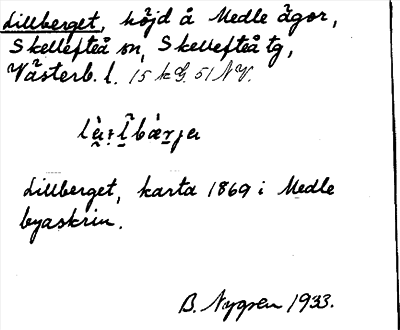 Lillberget, höjd å Medle ägor,
Skellefteå sn, Skellefteå tg,
Västerb. l. 15 k G. 51 NV.
Lillberget, karta 1869 i Medle
byaskrin.
B. Nygren 1933.